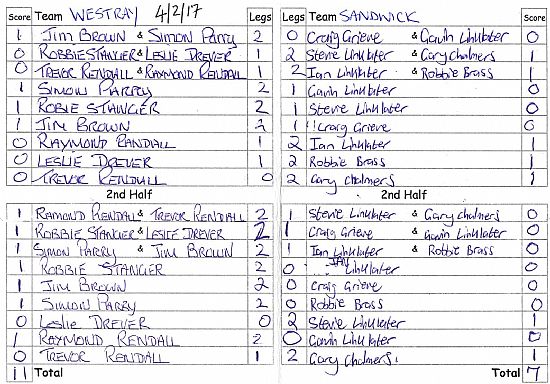 Score Team WESTRAY 4/2/17 Legs Legs Team SANDWICK Score
1 Jim BROWN & Simon Parry 2 0 Craig Grieve & Gavin Linklater 0
0 ROBBIE STANGER & LESLIE DREVER 1 2 Stevie Linklater & Gary Chalmers 1
0 TREVOR RENDALL & RAYMOND RENDALL 1 2 Ian Linklater & Robbie Brass 1
1 SIMON PARRY 2 1 Gavin Linklater 0
1 ROBIE STANGER 2 1 Stevie Linklater 0
1 JIM BROWN 2 1 Craig Grieve 0
0 RAYMOND RANDALL 1 2 Ian Linklater 1
0 LESLIE DREVER 1 2 Robbie Brass 1
0 TREVOR RENDALL 0 2 Gary Chalmers 1
2nd Half 2nd Half
1 RAMOND RENDALL & TREVOR RENDALL 2 1 Stevie Linklater & Gary Chalmers 0
1 ROBBIE STANGER & LESLIE DREVER 2 1 Craig Grieve & Gavin Linklater 0
1 SIMON PARRY & JIM BROWN 2 1 Ian Linklater & Robbie Brass 0
1 ROBBIE STANGER 2 0 IAN Linklater 0
1 JIM BROWN 2 0 Craig Grieve 0
1 SIMON PARRY 2 0 Robbie Brass 0
0 Leslie DREVER 0 2 Stevie Linklater 1
1 RAYMOND RENDALL 2 0 Gavin Linklater 0
0 TREVOR RENDALL 1 2 Gary Chalmers 1
11 Total Total 7